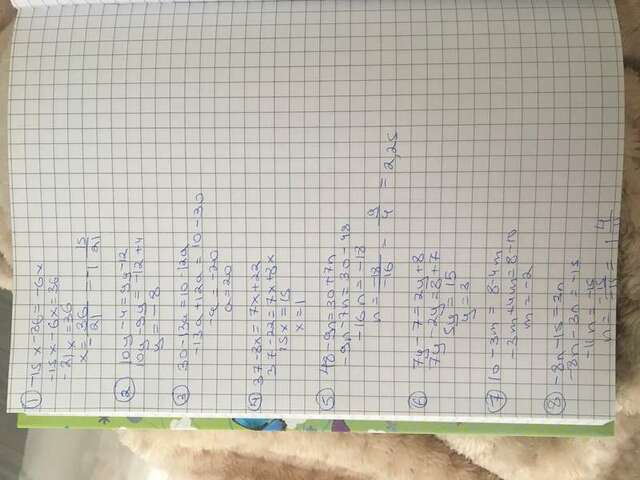 1 -15x-36=-6x
-15x-6x=36
-21x=36
x=-36/21=-1 15/21
2 10y-4=9y-12
10y-9y=-12+4
y=-8
3 30-13a=10-12a
-13a+12a=10-30
-a=-20
a=20
4 37-8x=7x+22
37-22=7x+8x
15x=15
x=1
5 48-9n=30+7n
-9n-7n=30-48
-16n=-18
n=-18/-16=9/4=2,25
6 7y-7=2y+8
7y-2y=8+7
5y=15
y=3
7 10-3m=8-4m
-3m+4m=8-10
m=-2
8 -8n-15=3n
-8n-3n=-15
-11n=-15